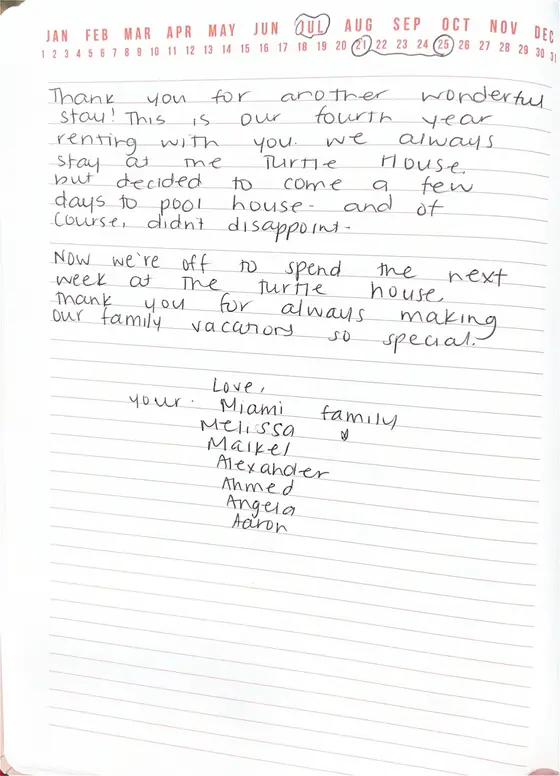 JAN FEB MAR APR MAY JUN JUL AUG SEP OCT NOV DEC
1 2 3 4 5 6 7 8 9 10 11 12 13 14 15 16 17 18 19 20 21 22 23 24 25 26 27 28 29 30 31
Thank you for another wonderful
stay! This is our fourth year
renting with you. we always
stay at the Turtle House,
but decided to come a few
days to pool house- and of
course, didn't disappoint-
Now we're off to spend the next
week at the turtle house,
thank you for always making
our family vacations so special.
Love,
your Miami family
Melissa
Maikel
Alexander
Ahmed
Angela
Aaron